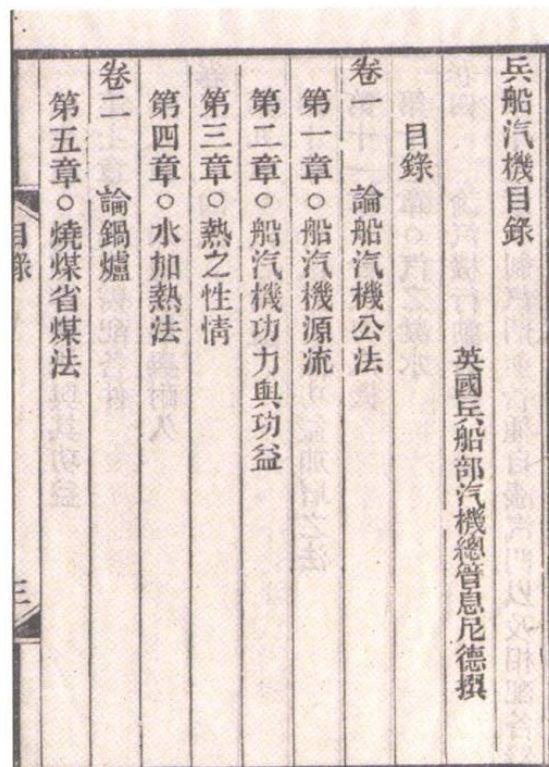 兵船汽機目錄
英國兵船部汽機總管息尼德撰
目錄
卷一 論船汽機公法
第一章○船汽機源流
第二章○船汽機功力與功益
第三章○熱之性情
第四章○水加熱法
卷二 論鍋爐
第五章○燒煤省煤法
目錄
三